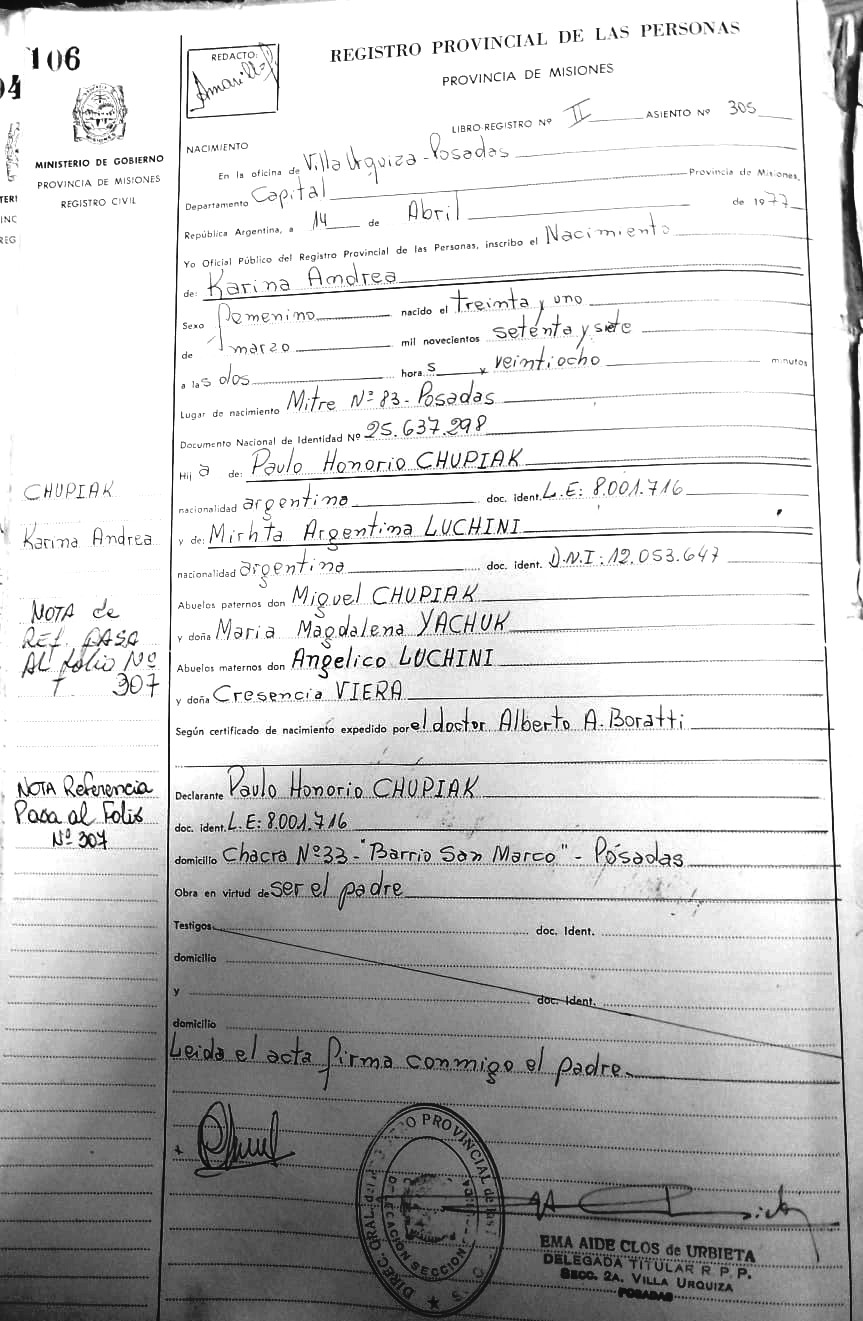 106
REDACTO:
REGISTRO PROVINCIAL DE LAS PERSONAS
PROVINCIA DE MISIONES
LIBRO-REGISTRO Nº II ASIENTO Nº 305
MINISTERIO DE GOBIERNO
PROVINCIA DE MISIONES
REGISTRO CIVIL
NACIMIENTO
En la oficina de Villa Urquiza - Posadas
Departamento Capital Provincia de Misiones,
República Argentina, a 14 de Abril de 1977
Yo Oficial Público del Registro Provincial de las Personas, inscribo el Nacimiento
de: Karina Andrea
Sexo Femenino nacido el treinta y uno
de marzo mil novecientos setenta y siete
a las dos horas y veintiocho minutos
Lugar de nacimiento Mitre Nº 83 - Posadas
Documento Nacional de Identidad Nº 25.637.298
Hija de: Paulo Honorio CHUPIAK
nacionalidad argentino doc. ident. L.E: 8.001.716
y de: Mirhta Argentina LUCHINI
nacionalidad argentina doc. ident. D.N.I: 12.053.647
Abuelos paternos don Miguel CHUPIAK
y doña Maria Magdalena YACHUK
Abuelos maternos don Angelico LUCHINI
y doña Cresencia VIERA
Según certificado de nacimiento expedido por el doctor Alberto A. Boratti
Declarante Paulo Honorio CHUPIAK
doc. ident. L.E: 8.001.716
domicilio Chacra Nº 33 - "Barrio San Marco" - Posadas
Obra en virtud de ser el padre
Testigos doc. Ident.
domicilio
y doc. Ident.
domicilio
Leida el acta firma conmigo el padre.
CHUPIAK
Karina Andrea
NOTA de
REF. PASA
AL folio Nº
307
NOTA Referencia
Pasa al Folio
Nº 307
EMA AIDE CLOS de URBIETA
DELEGADA TITULAR R. P. P.
SECC. 2A. VILLA URQUIZA
POSADAS